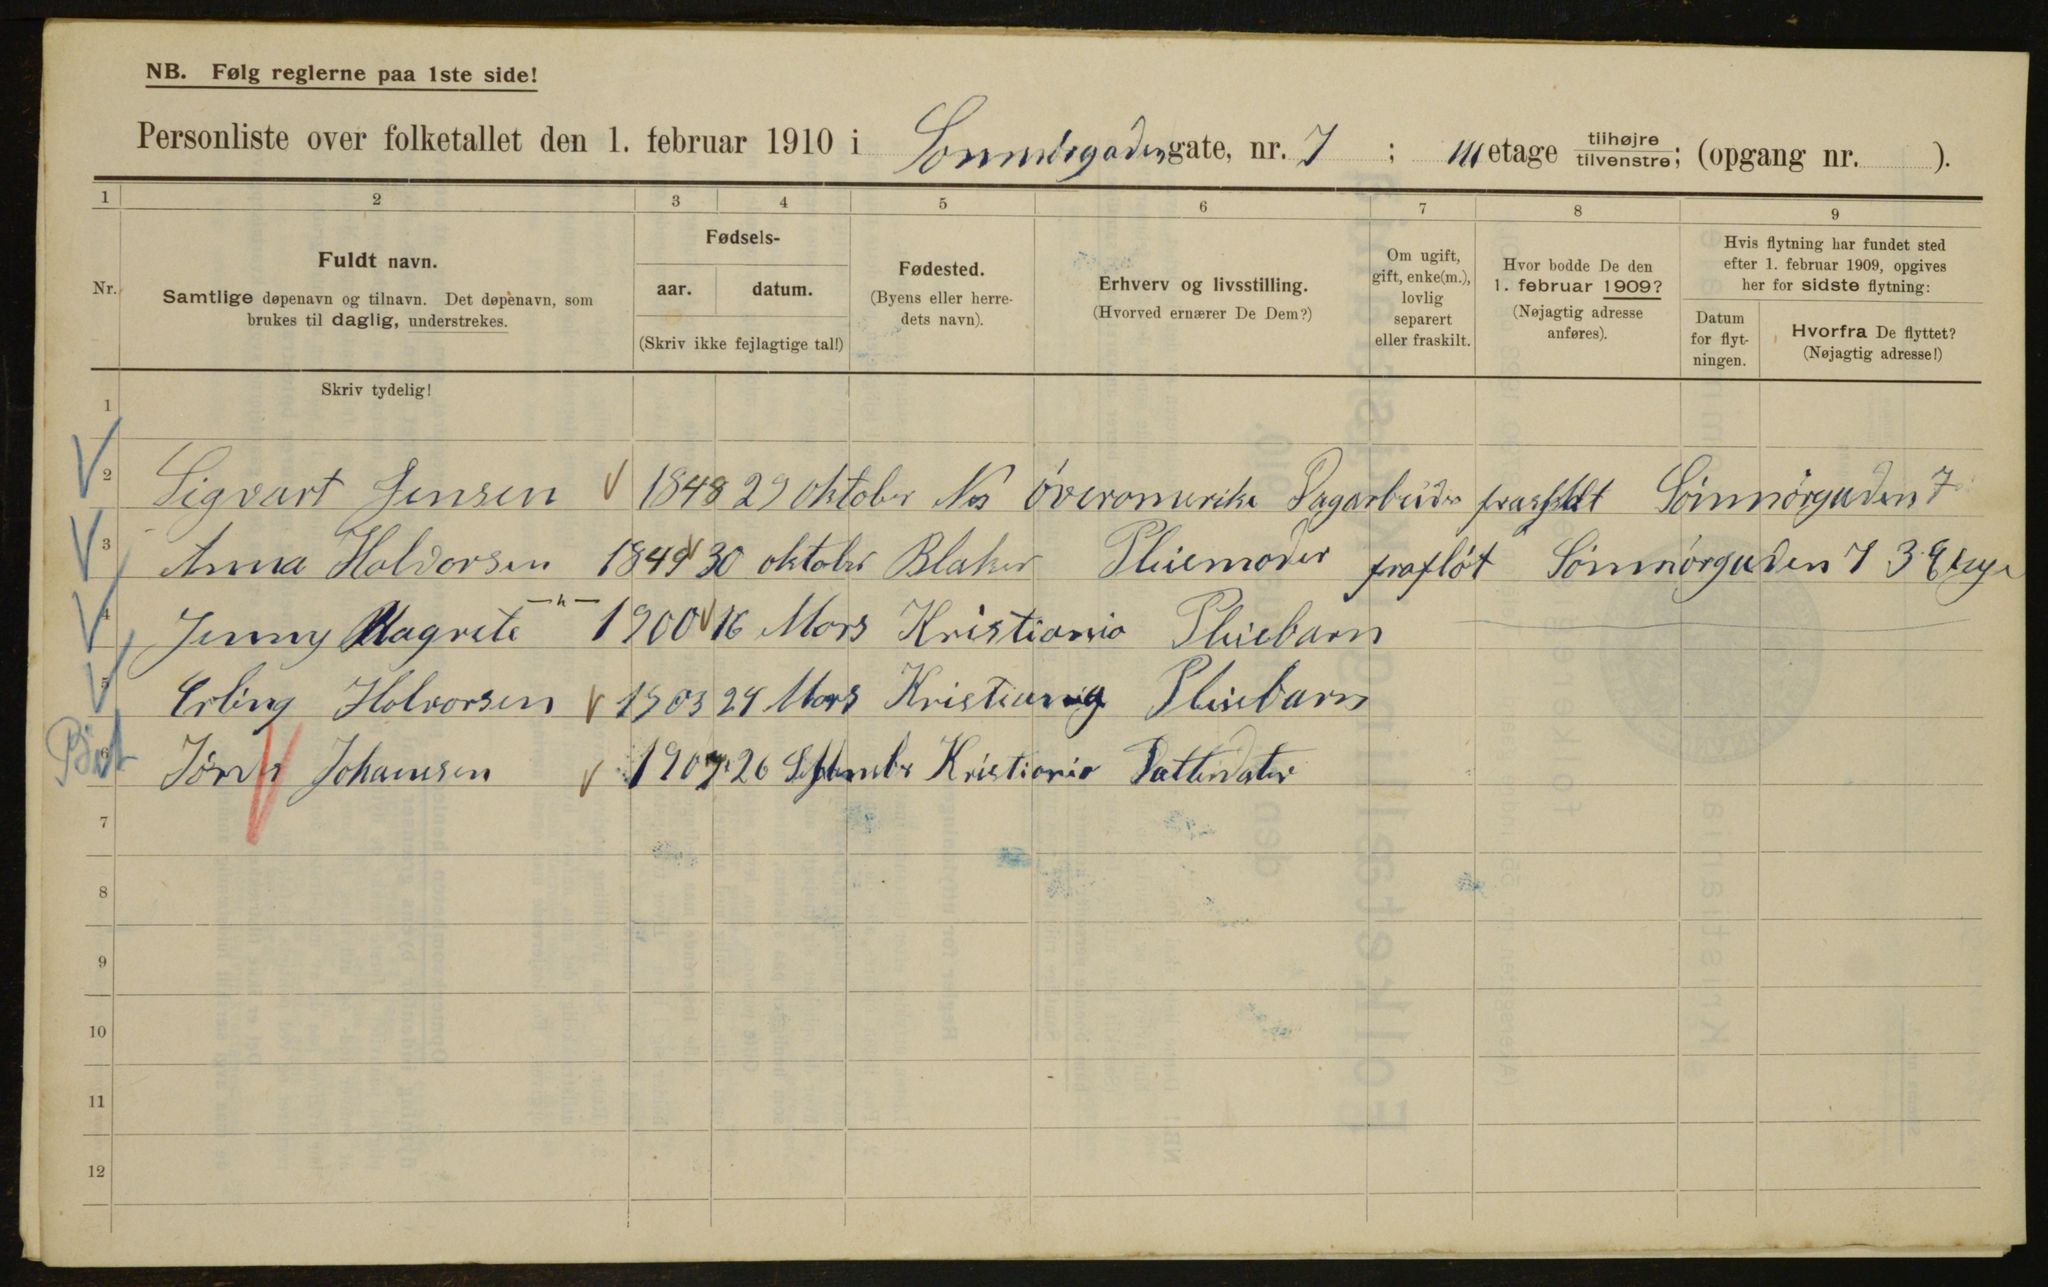 NB. Følg reglerne paa 1ste side!
Personliste over folketallet den 1. februar 1910 i Sonmørgaden gate, nr. 7 ; III etage tilhøjre tilvenstre; (opgang nr. ).
1 2 3 4 5 6 7 8 9
Nr.
Fuldt navn.
Samtlige døpenavn og tilnavn. Det døpenavn, som
brukes til daglig, understrekes.
Skriv tydelig!
Fødsels-
aar. datum.
(Skriv ikke fejlagtige tal!)
Fødested.
(Byens eller herre-
dets navn).
Erhverv og livsstilling.
(Hvorved ernærer De Dem?)
Om ugift,
gift, enke(m.),
lovlig
separert
eller fraskilt.
Hvor bodde De den
1. februar 1909?
(Nøjagtig adresse
anføres).
Hvis flytning har fundet sted
efter 1. februar 1909, opgives
her for sidste flytning:
Datum
for flyt-
ningen.
Hvorfra De flyttet?
(Nøjagtig adresse!)
1
2 Sigvart Jensen 1848 29 oktober Nes överomerike Dagarbeider Sönmörgaden 7
3 Anna Halvorsen 1849 30 oktober Blaker Pleiemoder fraflöt Sönmörgaden 7 3 Etage
4 Jenny Magrete —"— 1900 16 Mars Kristiania Pleiebarn
5 Erling Halvorsen 1903 24 Mars Kristiania Pleiebarn
6 Johansen 1907 26 September Kristiania Datterdater
7
8
9
10
11
12